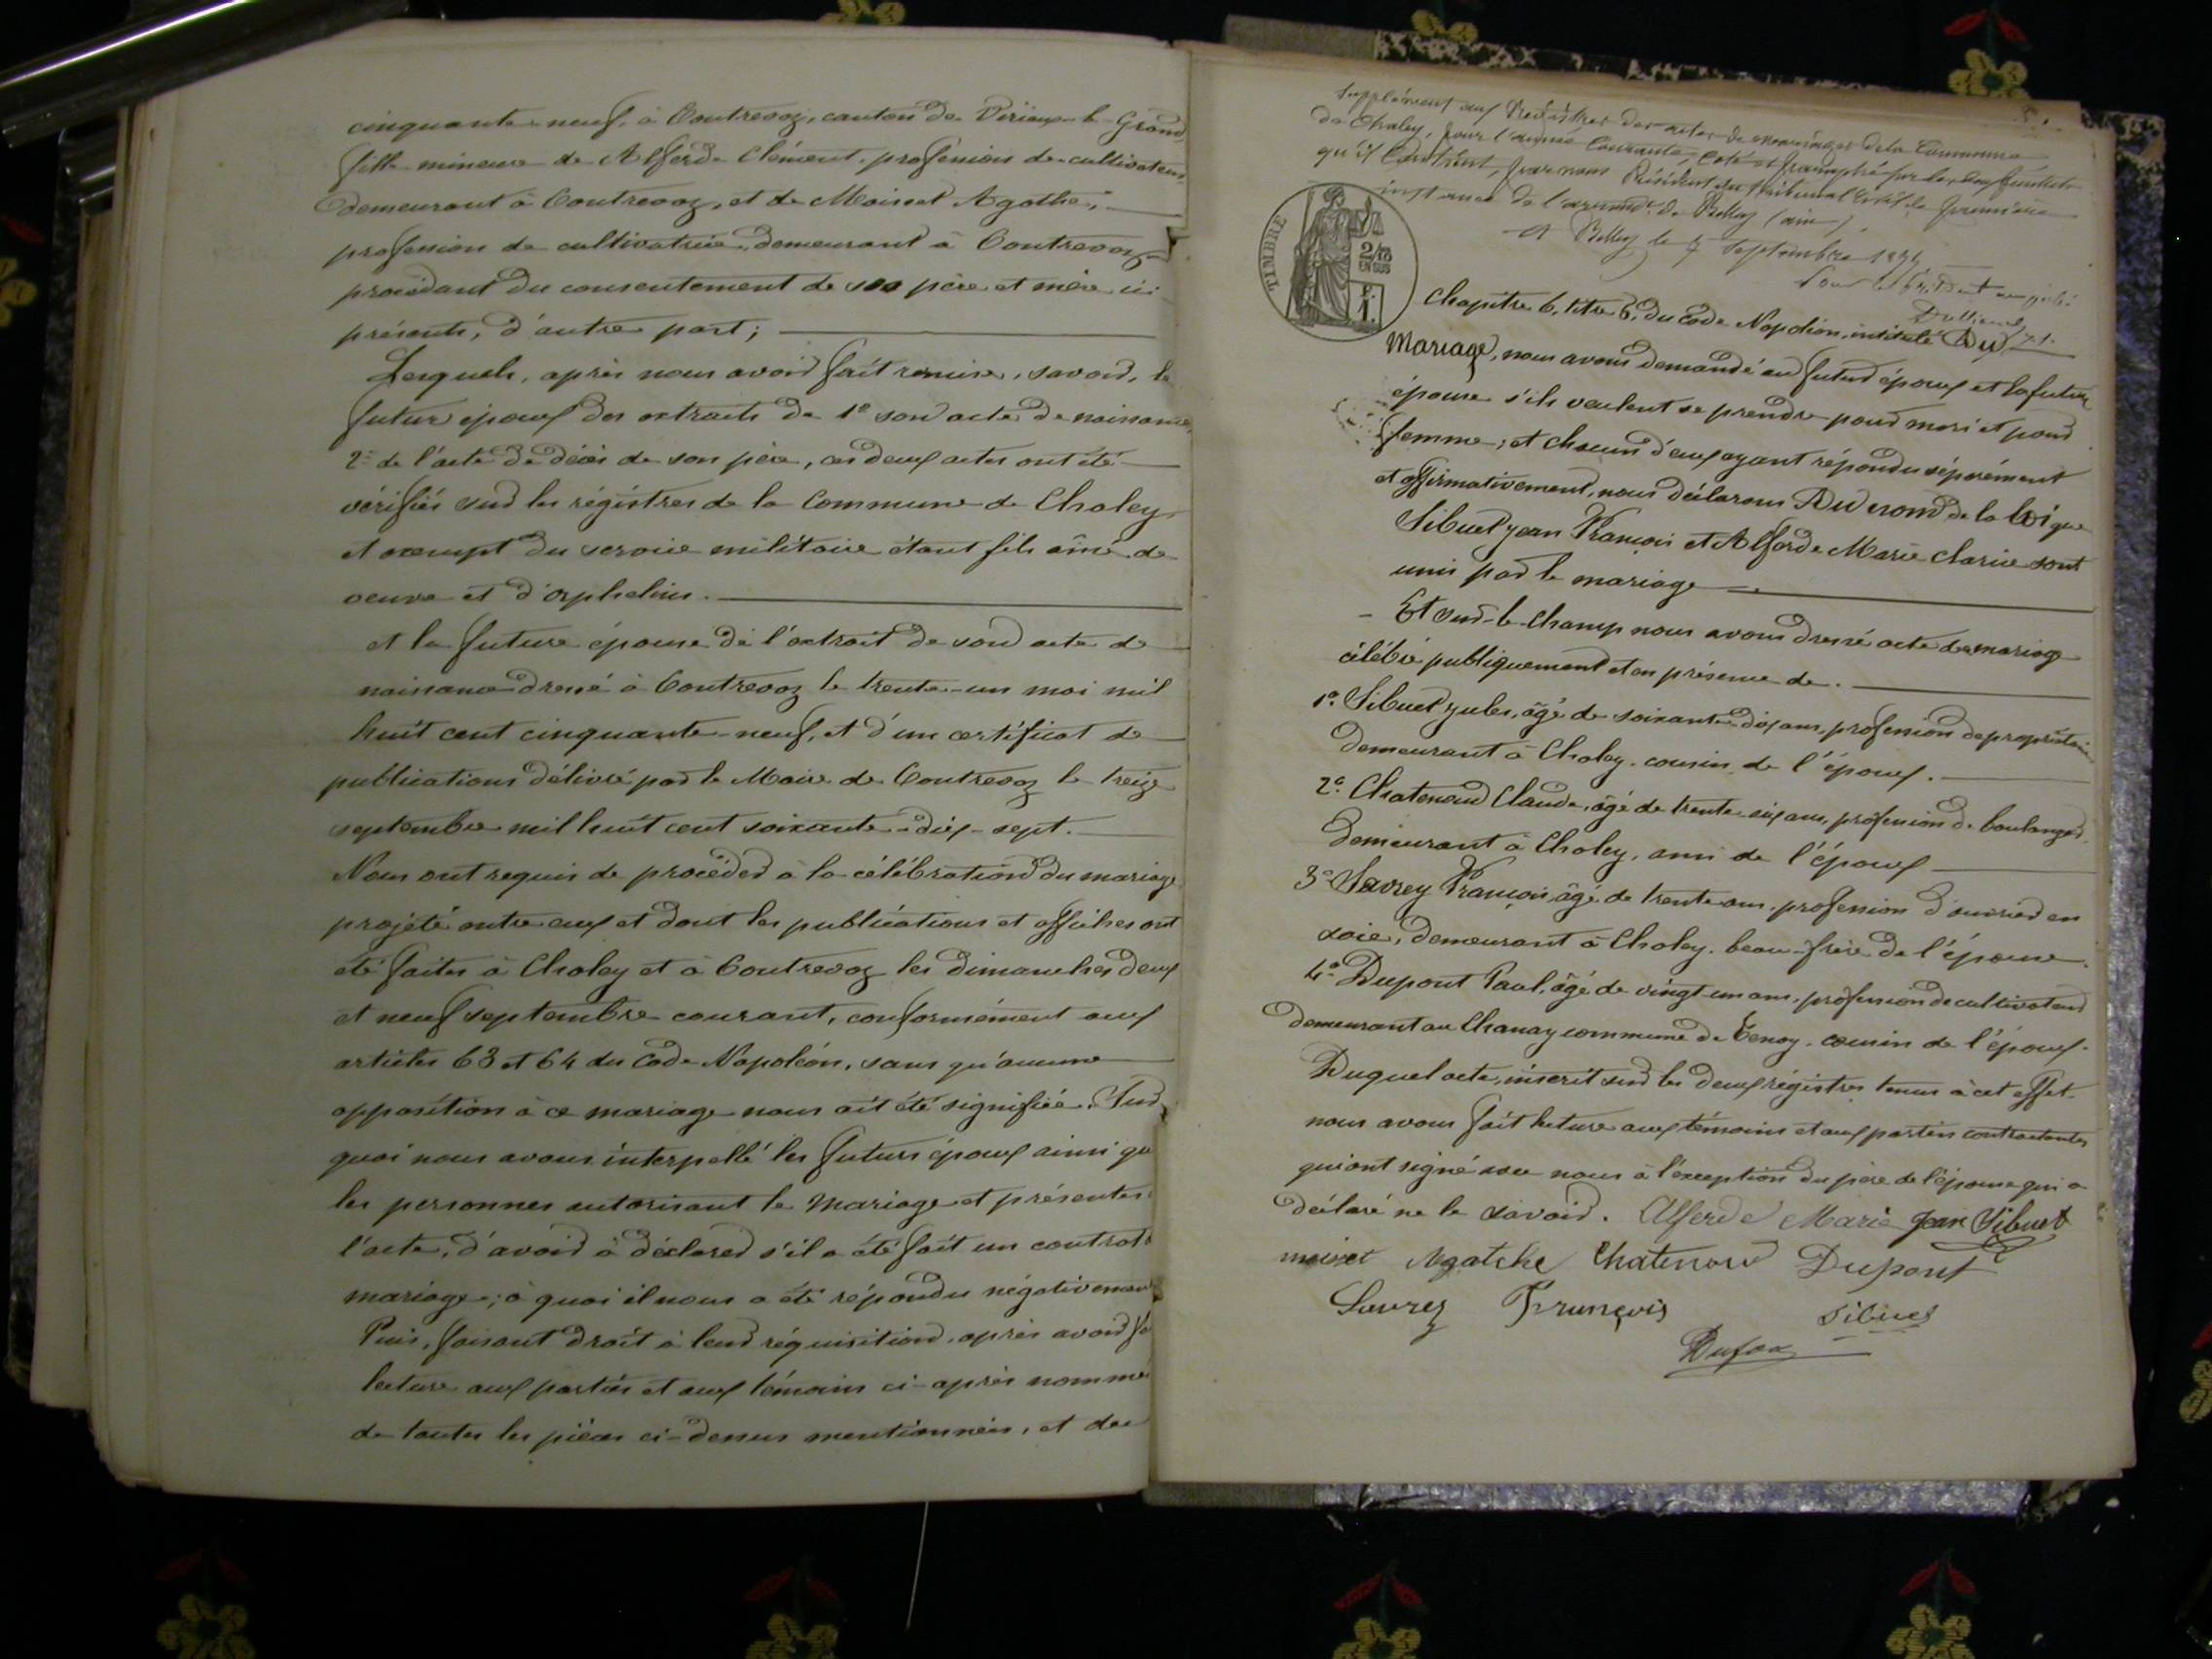 cinquante-neuf, à Contrevoz, canton de Virieux-le-Grand,
fille mineure de Alferde Clément, profession de cultivateur,
demeurant à Contrevoz, et de Moiset Agathe,
profession de cultivatrice, demeurant à Contrevoz
procédant du consentement de ses père et mère ici
présents, d'autre part;
Lesquels, après nous avoir fait remise, savoir, le
futur époux des extraits de 1º son acte de naissance,
2º de l'acte de décès de son père, ces deux actes ont été
vérifiés sur les régistres de la Commune de Chaley,
et exempt du service militaire étant fils aîné de
veuve et d'orphelins.
et la future épouse de l'extrait de son acte de
naissance dressé à Contrevoz le trente-un mai mil
huit cent cinquante-neuf, et d'un certificat de
publications délivré par le Maire de Contrevoz le treize
septembre mil huit cent soixante-dix-sept.
Nous ont requis de procéder à la célébration du mariage
projeté entre eux et dont les publications et affiches ont
été faites à Chaley et à Contrevoz les dimanches deux
et neuf septembre courant, conformément aux
articles 63 et 64 du Code Napoléon, sans qu'aucune
opposition à ce mariage nous ait été signifiée. Sur
quoi nous avons interpellé les futurs époux ainsi que
les personnes autorisant le mariage et présentes
l'acte, d'avoir à déclarer s'il a été fait un contrat
mariage; à quoi il nous a été répondu négativement
Puis, faisant droit à leur réquisition, après avoir
lecture aux parties et aux témoins ci-après nommés
de toutes les pièces ci-dessus mentionnées, et du
Supplément aux Registres des actes de mariages de la Commune
de Chaley, pour l'année Courante, Coté et paraphé par
qu'il Contient, par nous Président du tribunal Civil de première
instance de l'arrondt. de Belley (ain).
A Belley le 7 Septembre
Pour le Président empêché
TIMBRE
2/10
EN SUS
Chapitre 6, titre 5, du Code Napoléon, intitulé Du
Mariage, nous avons demandé au futur époux et la future
épouse s'ils veulent se prendre pour mari et pour
femme; et chacun d'eux ayant répondu séparément
et affirmativement, nous déclarons Au nom de la loi que
Sibuet Jean François et Alferde Marie Clarice sont
unis par le mariage
- Et sur-le-champ nous avons dressé acte de mariage
célébré publiquement et en présence de.
1º Sibuet Jules, âgé de soixante-dix ans, profession de propriétaire
demeurant à Chaley, cousin de l'époux.
2º Chatenoud Claude, âgé de trente-six ans, profession de boulanger,
demeurant à Chaley, ami de l'époux
3º Savrey François âgé de trente ans, profession d'ouvrier en
soie, demeurant à Chaley, beau-frère de l'épouse.
4º Dupont Paul, âgé de vingt-un ans, profession de cultivateur
demeurant au Chanay commune de Tenay, cousin de l'époux.
Duquel acte, inscrit sur les deux régistres tenus à cet effet,
nous avons fait lecture aux témoins et aux parties contractantes
qui ont signé avec nous à l'exception du père de l'épouse qui a
déclaré ne le savoir. Alferde Marie Jean Sibuet
moiset Agatche Chatenoud Dupont
Savrey Frunçois Sibuet